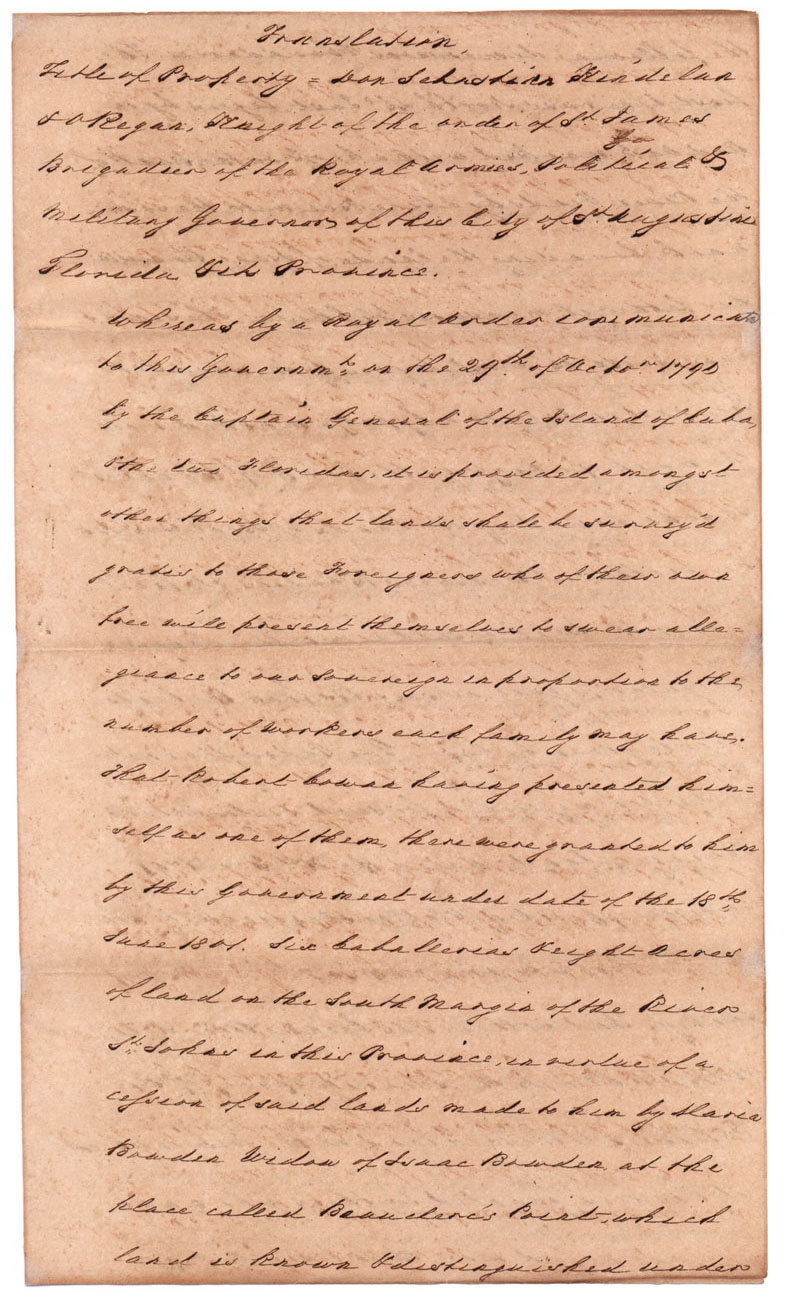 Translation,
Title of Property = Don Sebastian Kindelan
& O Regan, Knight of the order of St. James
Brigadier of the Royal Armies, Political &
Military Governor of this City of St. Augustine
Florida & its Province.
Whereas by a Royal Order communicate
to this Governmt. on the 29th. of Octor. 1790
by the Captain General of the Island of Cuba,
& the two Floridas, it is provided amongst
other things that lands shall be survey'd
gratis to those Foreigners who of their own
free will present themselves to swear alle=
=giance to our Sovereign in proportion to the
number of workers each family may have.
That Robert Cowan having presented him=
self as one of them, there were granted to him
by this Government under date of the 18th
June 1801. Six Caballerias & eight Acres
of land on the South Margin of the River
St. Johns in this Province, in virtue of a
cession of said lands made to him by Maria
Bowden Widow of Isaac Bowden at the
place called Beauclerc's Point, which
land is known & distinguished under